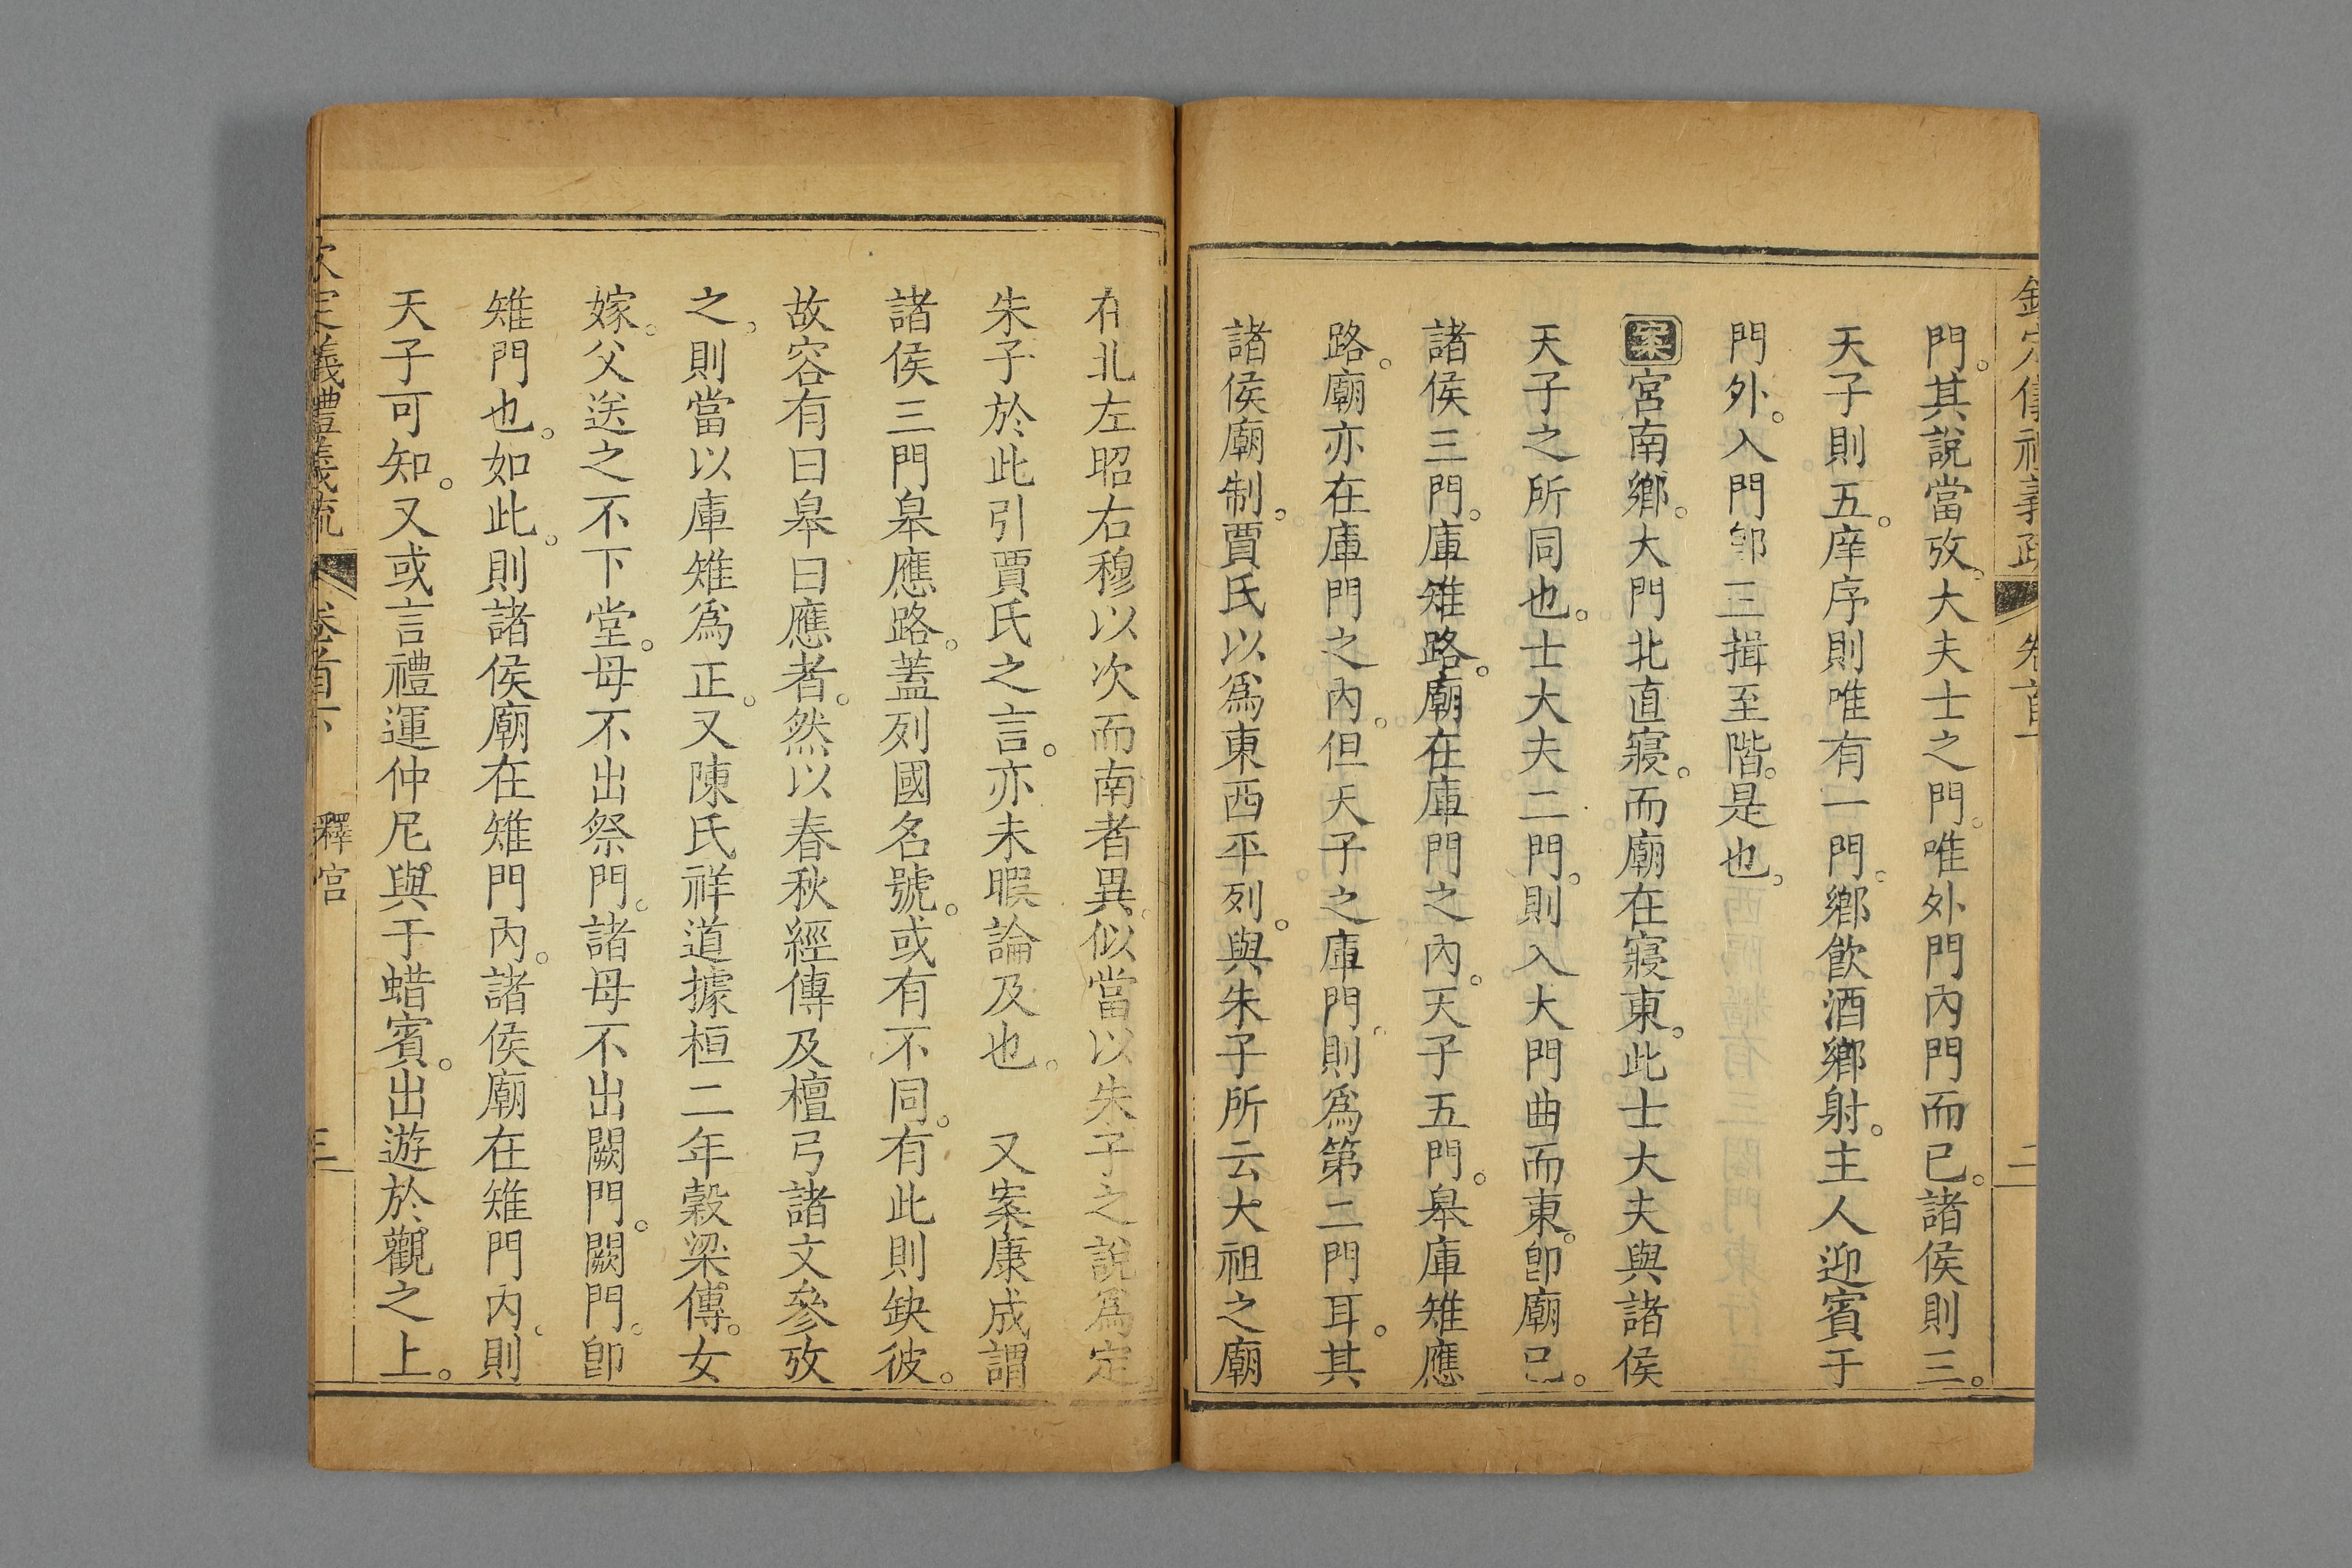 門其說當攷大夫士之門唯外門內門而已諸侯則三
天子則五庠序則唯有一門鄉飲酒鄉射主人迎賓于
門外入門卽三揖至階是也
案宮南鄉大門北直寢而廟在寢東此士大夫與諸侯
天子之所同也士大夫二門則入大門曲而東卽廟已
諸侯三門庫雉路廟在庫門之內天子五門皋庫雉應
路廟亦在庫門之內但天子之庫門則爲第二門耳其
諸侯廟制賈氏以爲東西平列與朱子所云大祖之廟
在北左昭右穆以次而南者異似當以朱子之說爲定
朱子於此引賈氏之言亦未暇論及也 又案康成謂
諸侯三門皋應路蓋列國名號或有不同有此則缺彼
故容有曰皋曰應者然以春秋經傳及檀弓諸文參攷
之則當以庫雉爲正又陳氏祥道據桓二年榖梁傳女
嫁父送之不下堂母不出祭門諸母不出闕門闕門卽
雉門也如此則諸侯廟在雉門內諸侯廟在雉門內則
天子可知又或言禮運仲尼與于蜡賓出遊於觀之上
欽定儀禮義疏 卷首下 釋宮 三